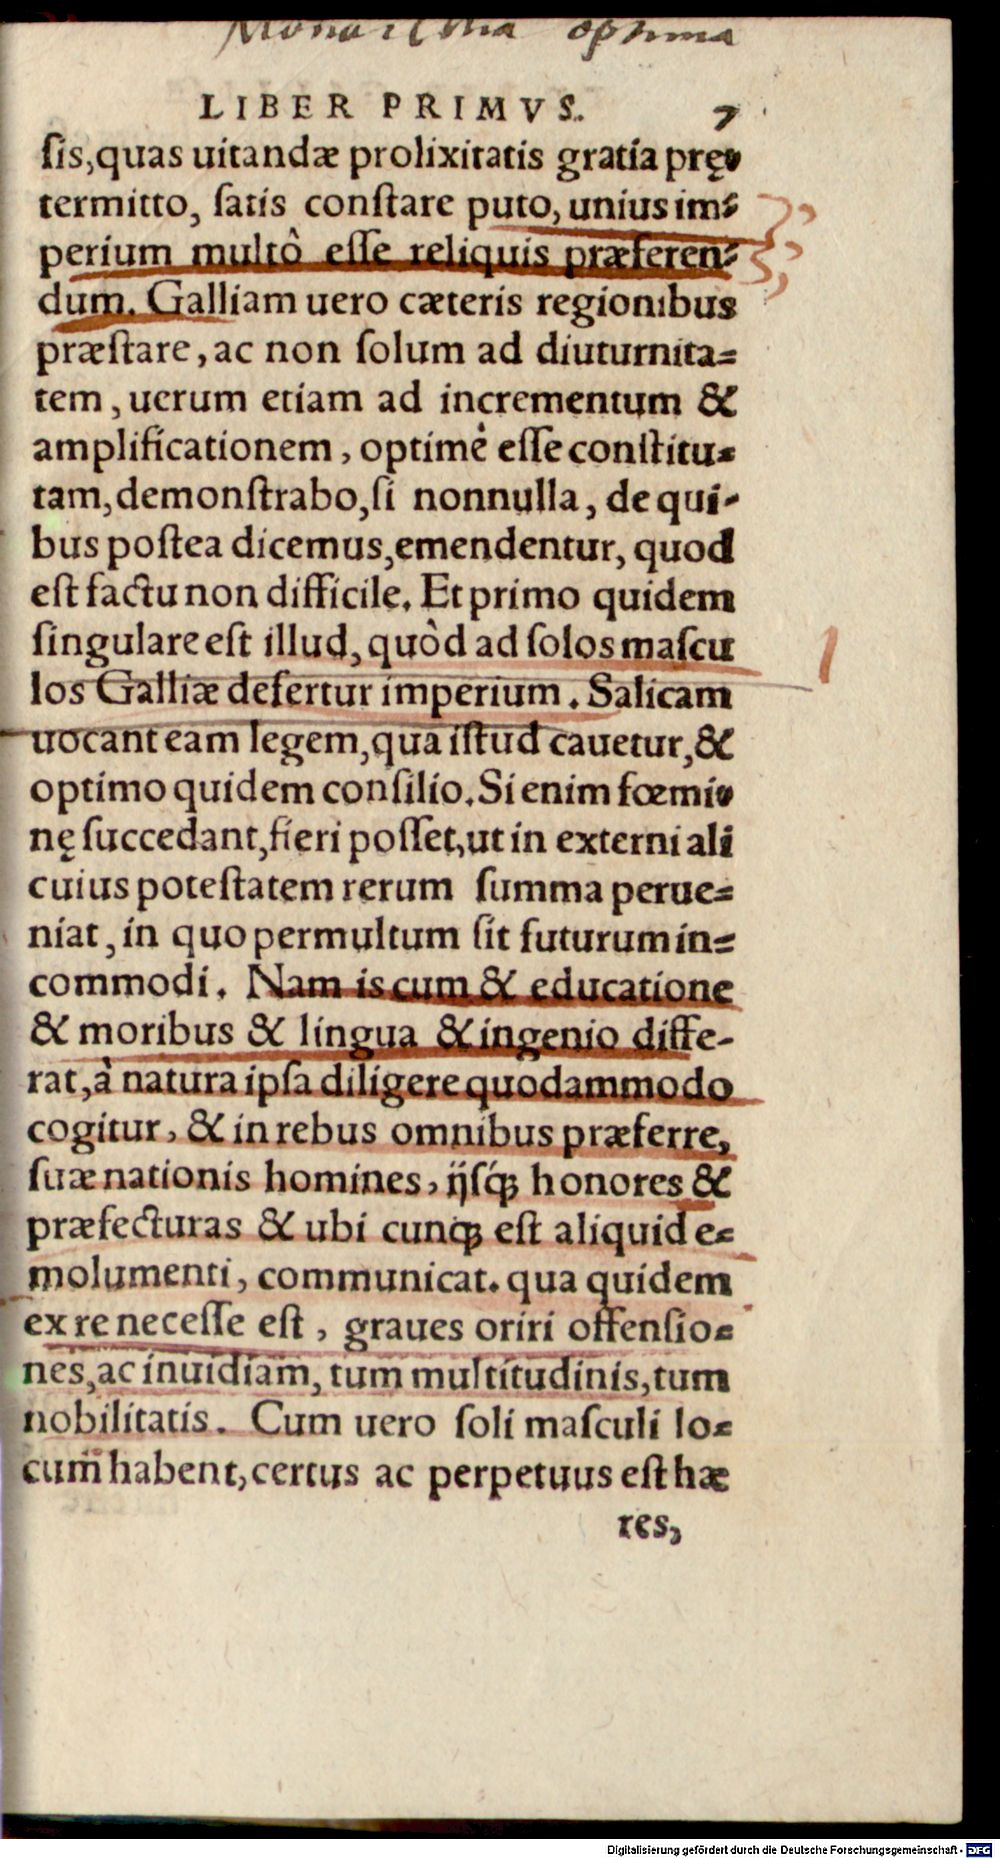 Monarchia optima
LIBER PRIMVS. 7
ſis,quas uitandæ prolixitatis gratia prę-
termitto, ſatis conſtare puto, unius im-
perium multò eſſe reliquis præferen-
dum. Galliam uero cæteris regionibus
præſtare, ac non ſolum ad diuturnita-
tem, uerum etiam ad incrementum &
amplificationem, optimè eſſe conſtitu-
tam, demonſtrabo, ſi nonnulla, de qui-
bus poſtea dicemus, emendentur, quod
eſt factu non difficile. Et primo quidem
ſingulare eſt illud, quòd ad ſolos maſcu
los Galliæ defertur imperium. Salicam
uocant eam legem, qua iſtud cauetur, &
optimo quidem conſilio. Si enim fœmi-
nę ſuccedant, fieri poſſet, ut in externi ali
cuius poteſtatem rerum ſumma perue-
niat, in quo permultum ſit futurum in-
commodi. Nam is cum & educatione
& moribus & lingua & ingenio diffe-
rat, à natura ipſa diligere quodammodo
cogitur, & in rebus omnibus præferre,
ſuæ nationis homines, ijſq́ꝫ honores &
præfecturas & ubi cunqꝫ eſt aliquid e-
molumenti, communicat. qua quidem
ex re neceſſe eſt, graues oriri offenſio-
nes, ac inuidiam, tum multitudinis, tum
nobilitatis. Cum uero ſoli maſculi lo-
cum̃ habent, certus ac perpetuus eſt hæ
res,
Digitalisierung gefördert durch die Deutsche Forschungsgemeinschaft - DFG